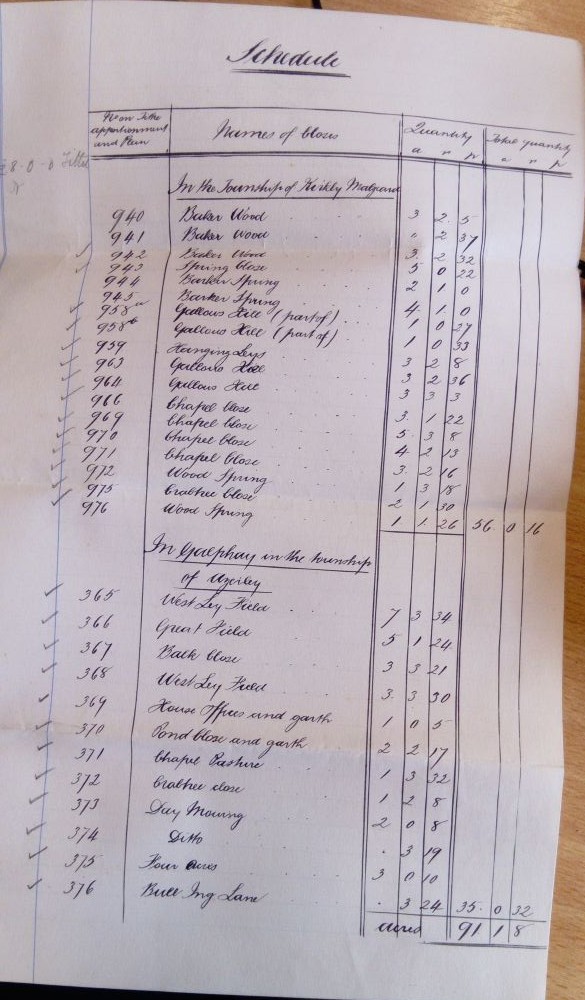 Schedule
No on Tithe apportionment and Plan Names of closes Quantity Total quantity
a r p a r p
£8-0-0 Tithe
In the Township of Kirkby Malzeard
940 Baker Wood 3 2 5
941 Baker Wood " 2 37
942 Baker Wood 3 2 32
943 Spring close 5 0 22
944 Barker Spring 2 1 0
945 Barker Spring 4 1 0
958a Gallows Hill (part of) 1 0 27
958b Gallows Hill (part of) 1 0 33
959 Hanging Leys 3 2 8
963 Gallows Hill 3 2 36
964 Gallows Hill 3 3 3
966 Chapel close 3 1 22
969 Chapel close 5 3 8
970 Chapel close 4 2 13
971 Chapel close 3 2 16
972 Wood Spring 1 3 18
975 Crabtree close 2 1 30
976 Wood Spring 1 1 26 56 0 16
In Galphay in the township
of Azerley
365 West Ley Field 7 3 34
366 Great Field 5 1 24
367 Balk close 3 3 21
368 West Ley Field 3 3 30
369 House Offices and garth 1 0 5
370 Pond close and garth 2 2 17
371 Chapel Pasture 1 3 32
372 Crabtree close 1 2 8
373 Day Mowing 2 0 8
374 Ditto . 3 19
375 Four acres 3 0 10
376 Bull Ing Lane . 3 24 35 0 32
acres 91 1 8